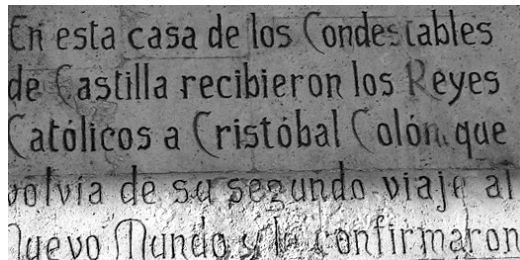 En esta casa de los Condestables
de Castilla recibieron los Reyes
Católicos a Cristóbal Colón, que
volvía de su segundo viaje al
Nuevo Mundo y le confirmaron